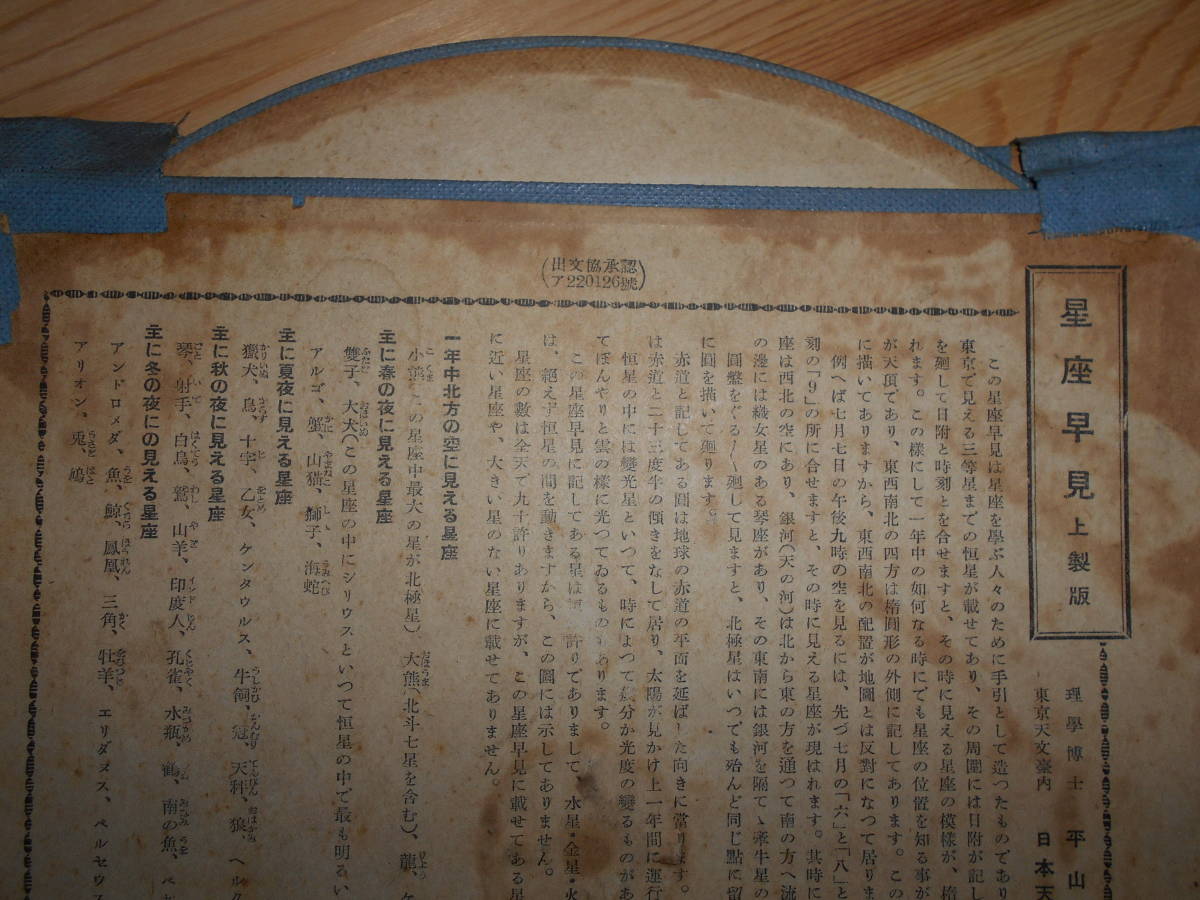 出文協承認
ア220126號
星座早見 上製版
理學博士 平山
東京天文臺內 日本天
この星座早見は星座を學ぶ人々のために手引として造つたものであり
東京で見える三等星までの恒星が載せてあり、その周圍には日附が記し
を廻して日附と時刻とを合せますと、その時に見える星座の模樣が、楕
れます。この樣にして一年中の如何なる時にでも星座の位置を知る事が
が天頂であり、東西南北の四方は楕圓形の外側に記してあります。この
に描いてありますから、東西南北の配置が地圖とは反對になつて居りま
例へば七月七日の午後九時の空を見るには、先づ七月の「六」と「八」と
刻の「9」の所に合せますと、その時に見える星座が現はれます。其時に
座は西北の空にあり、銀河(天の河)は北から東の方を通つて南の方へ流
の邊には織女星のある琴座があり、その東南には銀河を隔てゝ牽牛星の
圓盤をぐる〳〵廻して見ますと、北極星はいつでも殆んど同じ點に留
に圓を描いて廻ります。
赤道と記してある圓は地球の赤道の平面を延ばした向きに當ります。
は赤道と二十三度半の傾きをなして居り、太陽が見かけ上一年間に運行
恒星の中には變光星といつて、時によつて幾分か光度の變るものがあ
てぼんやりと雲の樣に光つてゐるものもあります。
この星座早見に記してある星は恒 許りでありまして、水星・金星・火
は、絕えず恒星の間を動きますから、この圖には示してありません。
星座の數は全天で九十許りありますが、この星座早見に載せてある星
に近い星座や、大きい星のない星座に載せてありません。
一年中北方の空に見える星座
小熊(この星座中最大の星が北極星)、大熊(北斗七星を含む)、龍、ケ
主に春の夜に見える星座
雙子、大犬(この星座の中にシリウスといつて恒星の中で最も明るい
アルゴ、蟹、山猫、獅子、海蛇
主に夏夜に見える星座
獵犬、烏、十字、乙女、ケンタウルス、牛飼、冠、天秤、狼、ヘルク
主に秋の夜に見える星座
琴、射手、白鳥、鷲、山羊、印度人、孔雀、水瓶、鶴、南の魚、ペガ
主に冬の夜にの見える星座
アンドロメダ、魚、鯨、鳳凰、三角、牡羊、エリダヌス、ペルセウス
アリオン、兎、鳩